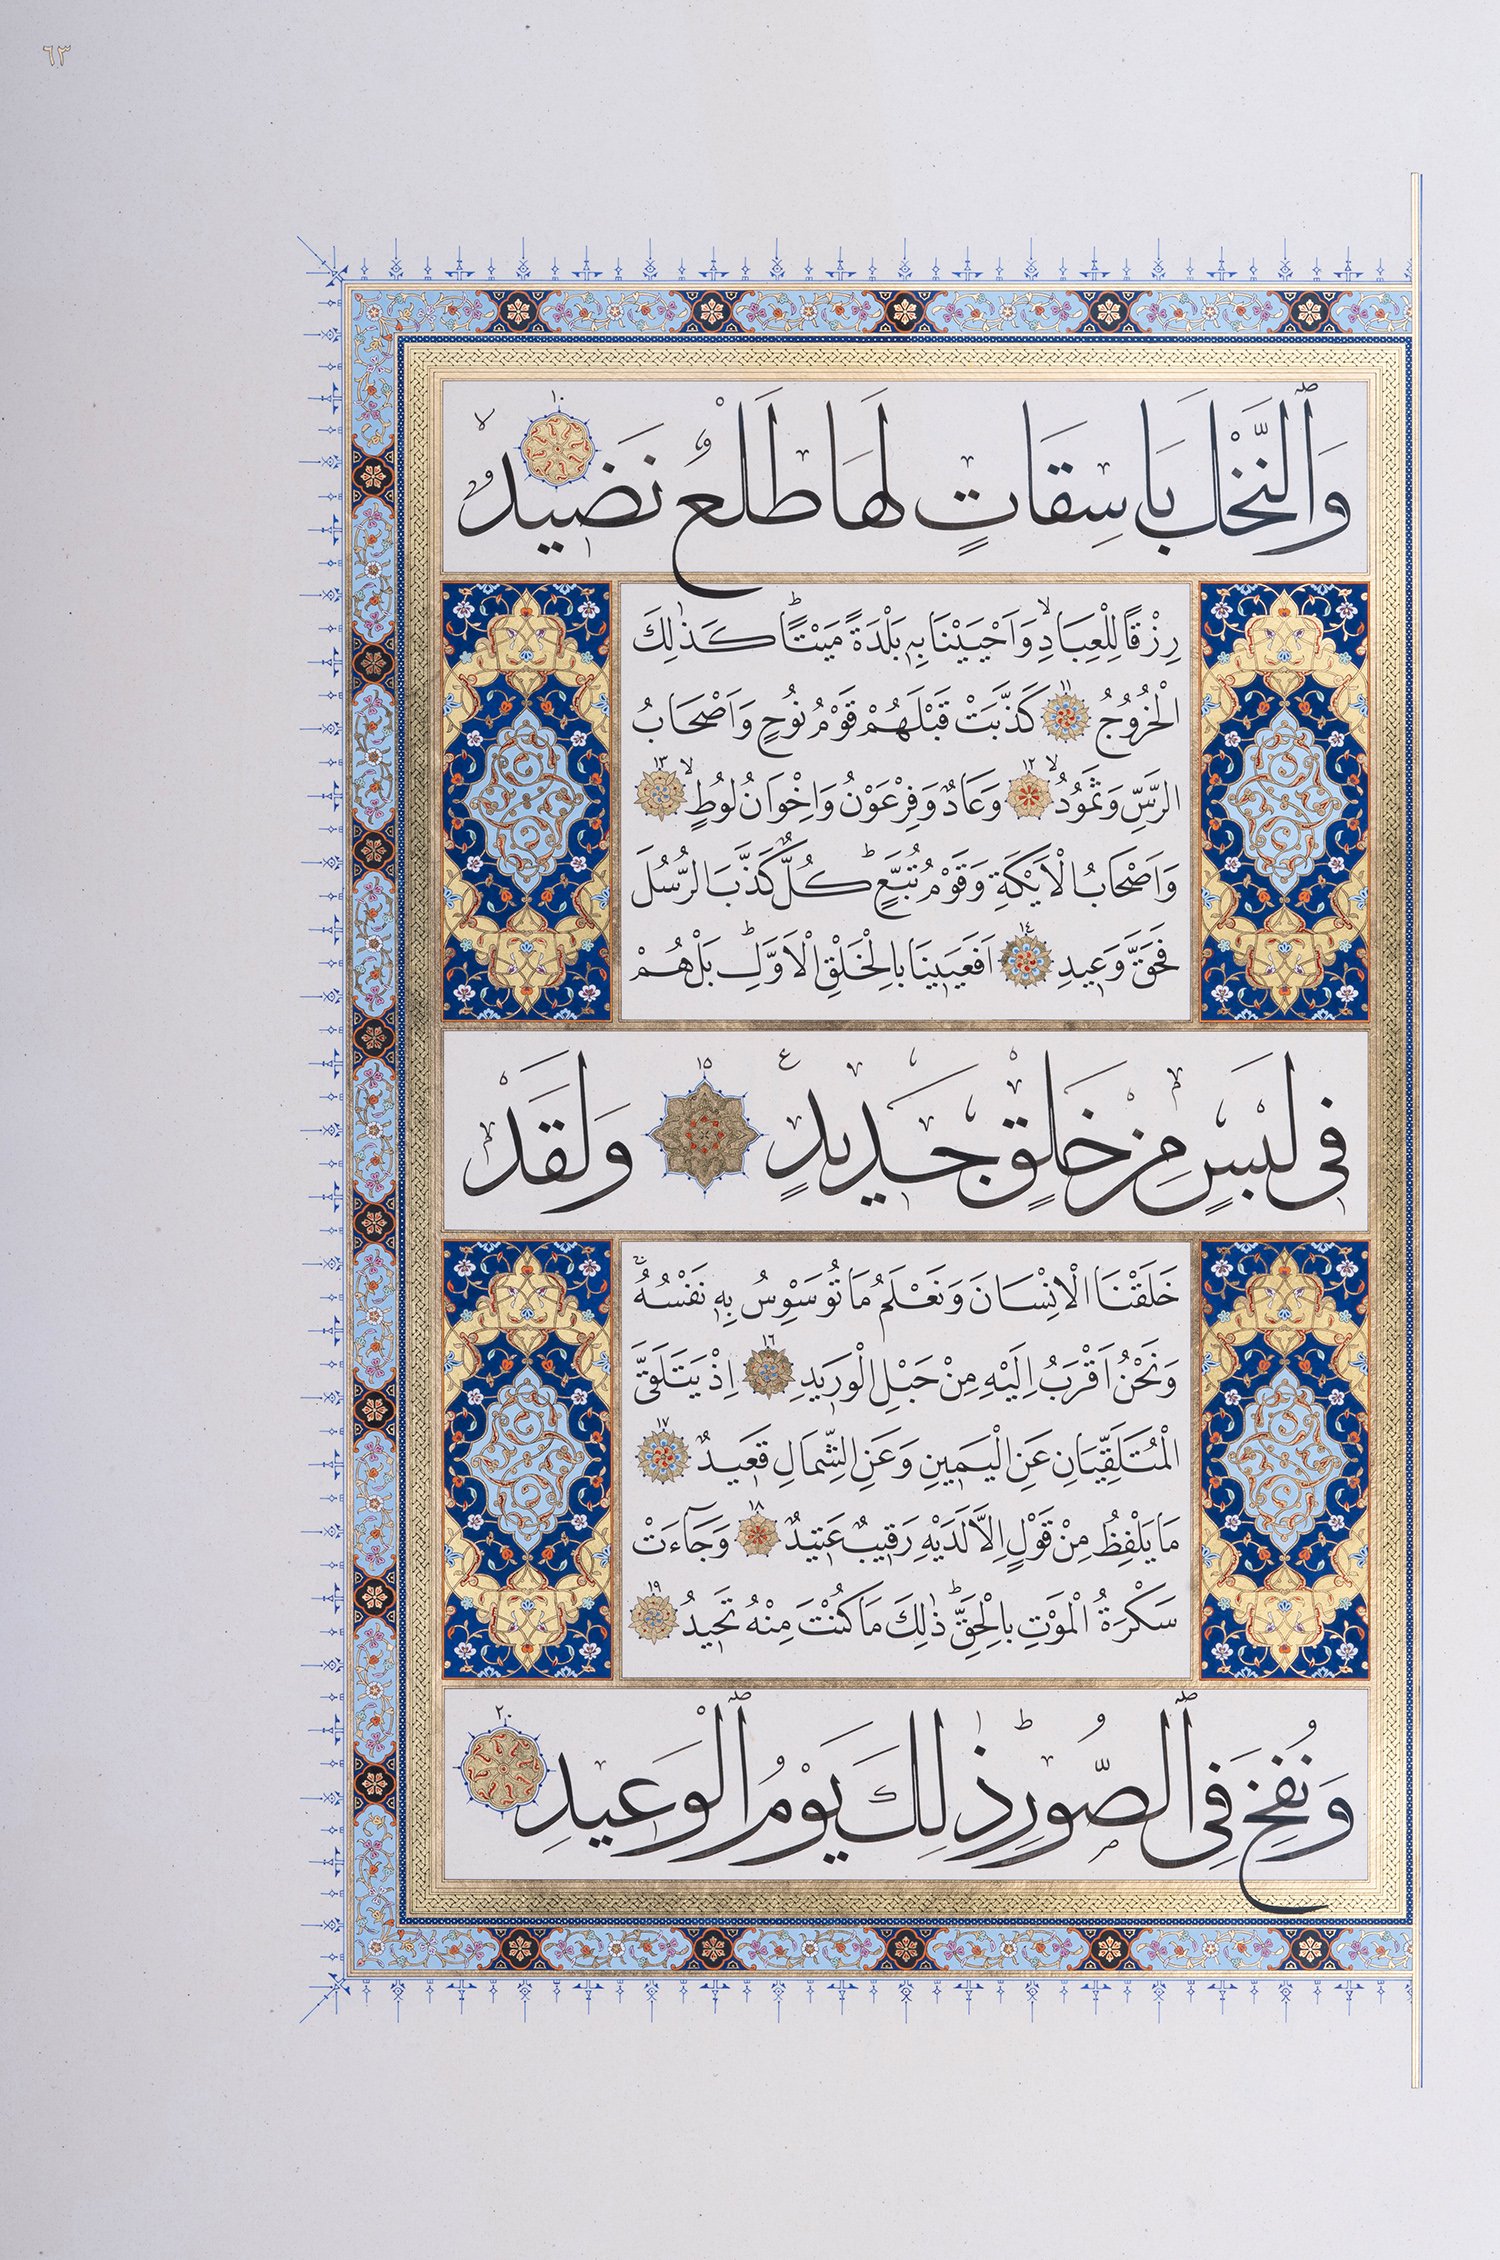 ٦٣
وَٱلنَّخْلَ بَاسِقَاتٍ لَهَا طَلْعٌ نَضٖيدٌۙ ١٠
رِزْقًا لِلْعِبَادِۙ وَاَحْيَيْنَا بِهٖ بَلْدَةً مَيْتًاؕ كَذٰلِكَ
الْخُرُوجُ ١١ كَذَّبَتْ قَبْلَهُمْ قَوْمُ نُوحٍ وَاَصْحَابُ
الرَّسِّ وَثَمُودُۙ ١٢ وَعَادٌ وَفِرْعَوْنُ وَاِخْوَانُ لُوطٍۙ ١٣
وَاَصْحَابُ الْاَيْكَةِ وَقَوْمُ تُبَّعٍؕ كُلٌّ كَذَّبَ الرُّسُلَ
فَحَقَّ وَعٖيدِ ١٤ اَفَعَيٖينَا بِالْخَلْقِ الْاَوَّلِؕ بَلْ هُمْ
فٖى لَبْسٍ مِنْ خَلْقٍ جَدٖيدٍ ع ١٥ وَلَقَدْ
خَلَقْنَا الْاِنْسَانَ وَنَعْلَمُ مَا تُوَسْوِسُ بِهٖ نَفْسُهُۚ
وَنَحْنُ اَقْرَبُ اِلَيْهِ مِنْ حَبْلِ الْوَرٖيدِ ١٦ اِذْ يَتَلَقَّى
الْمُتَلَقِّيَانِ عَنِ الْيَمٖينِ وَعَنِ الشِّمَالِ قَعٖيدٌ ١٧
مَا يَلْفِظُ مِنْ قَوْلٍ اِلَّا لَدَيْهِ رَقٖيبٌ عَتٖيدٌ ١٨ وَجَٓاءَتْ
سَكْرَةُ الْمَوْتِ بِالْحَقِّؕ ذٰلِكَ مَا كُنْتَ مِنْهُ تَحٖيدُ ١٩
وَنُفِخَ فِى ٱلصُّورِؕ ذٰلِكَ يَوْمُ ٱلْوَعٖيدِ ٢٠